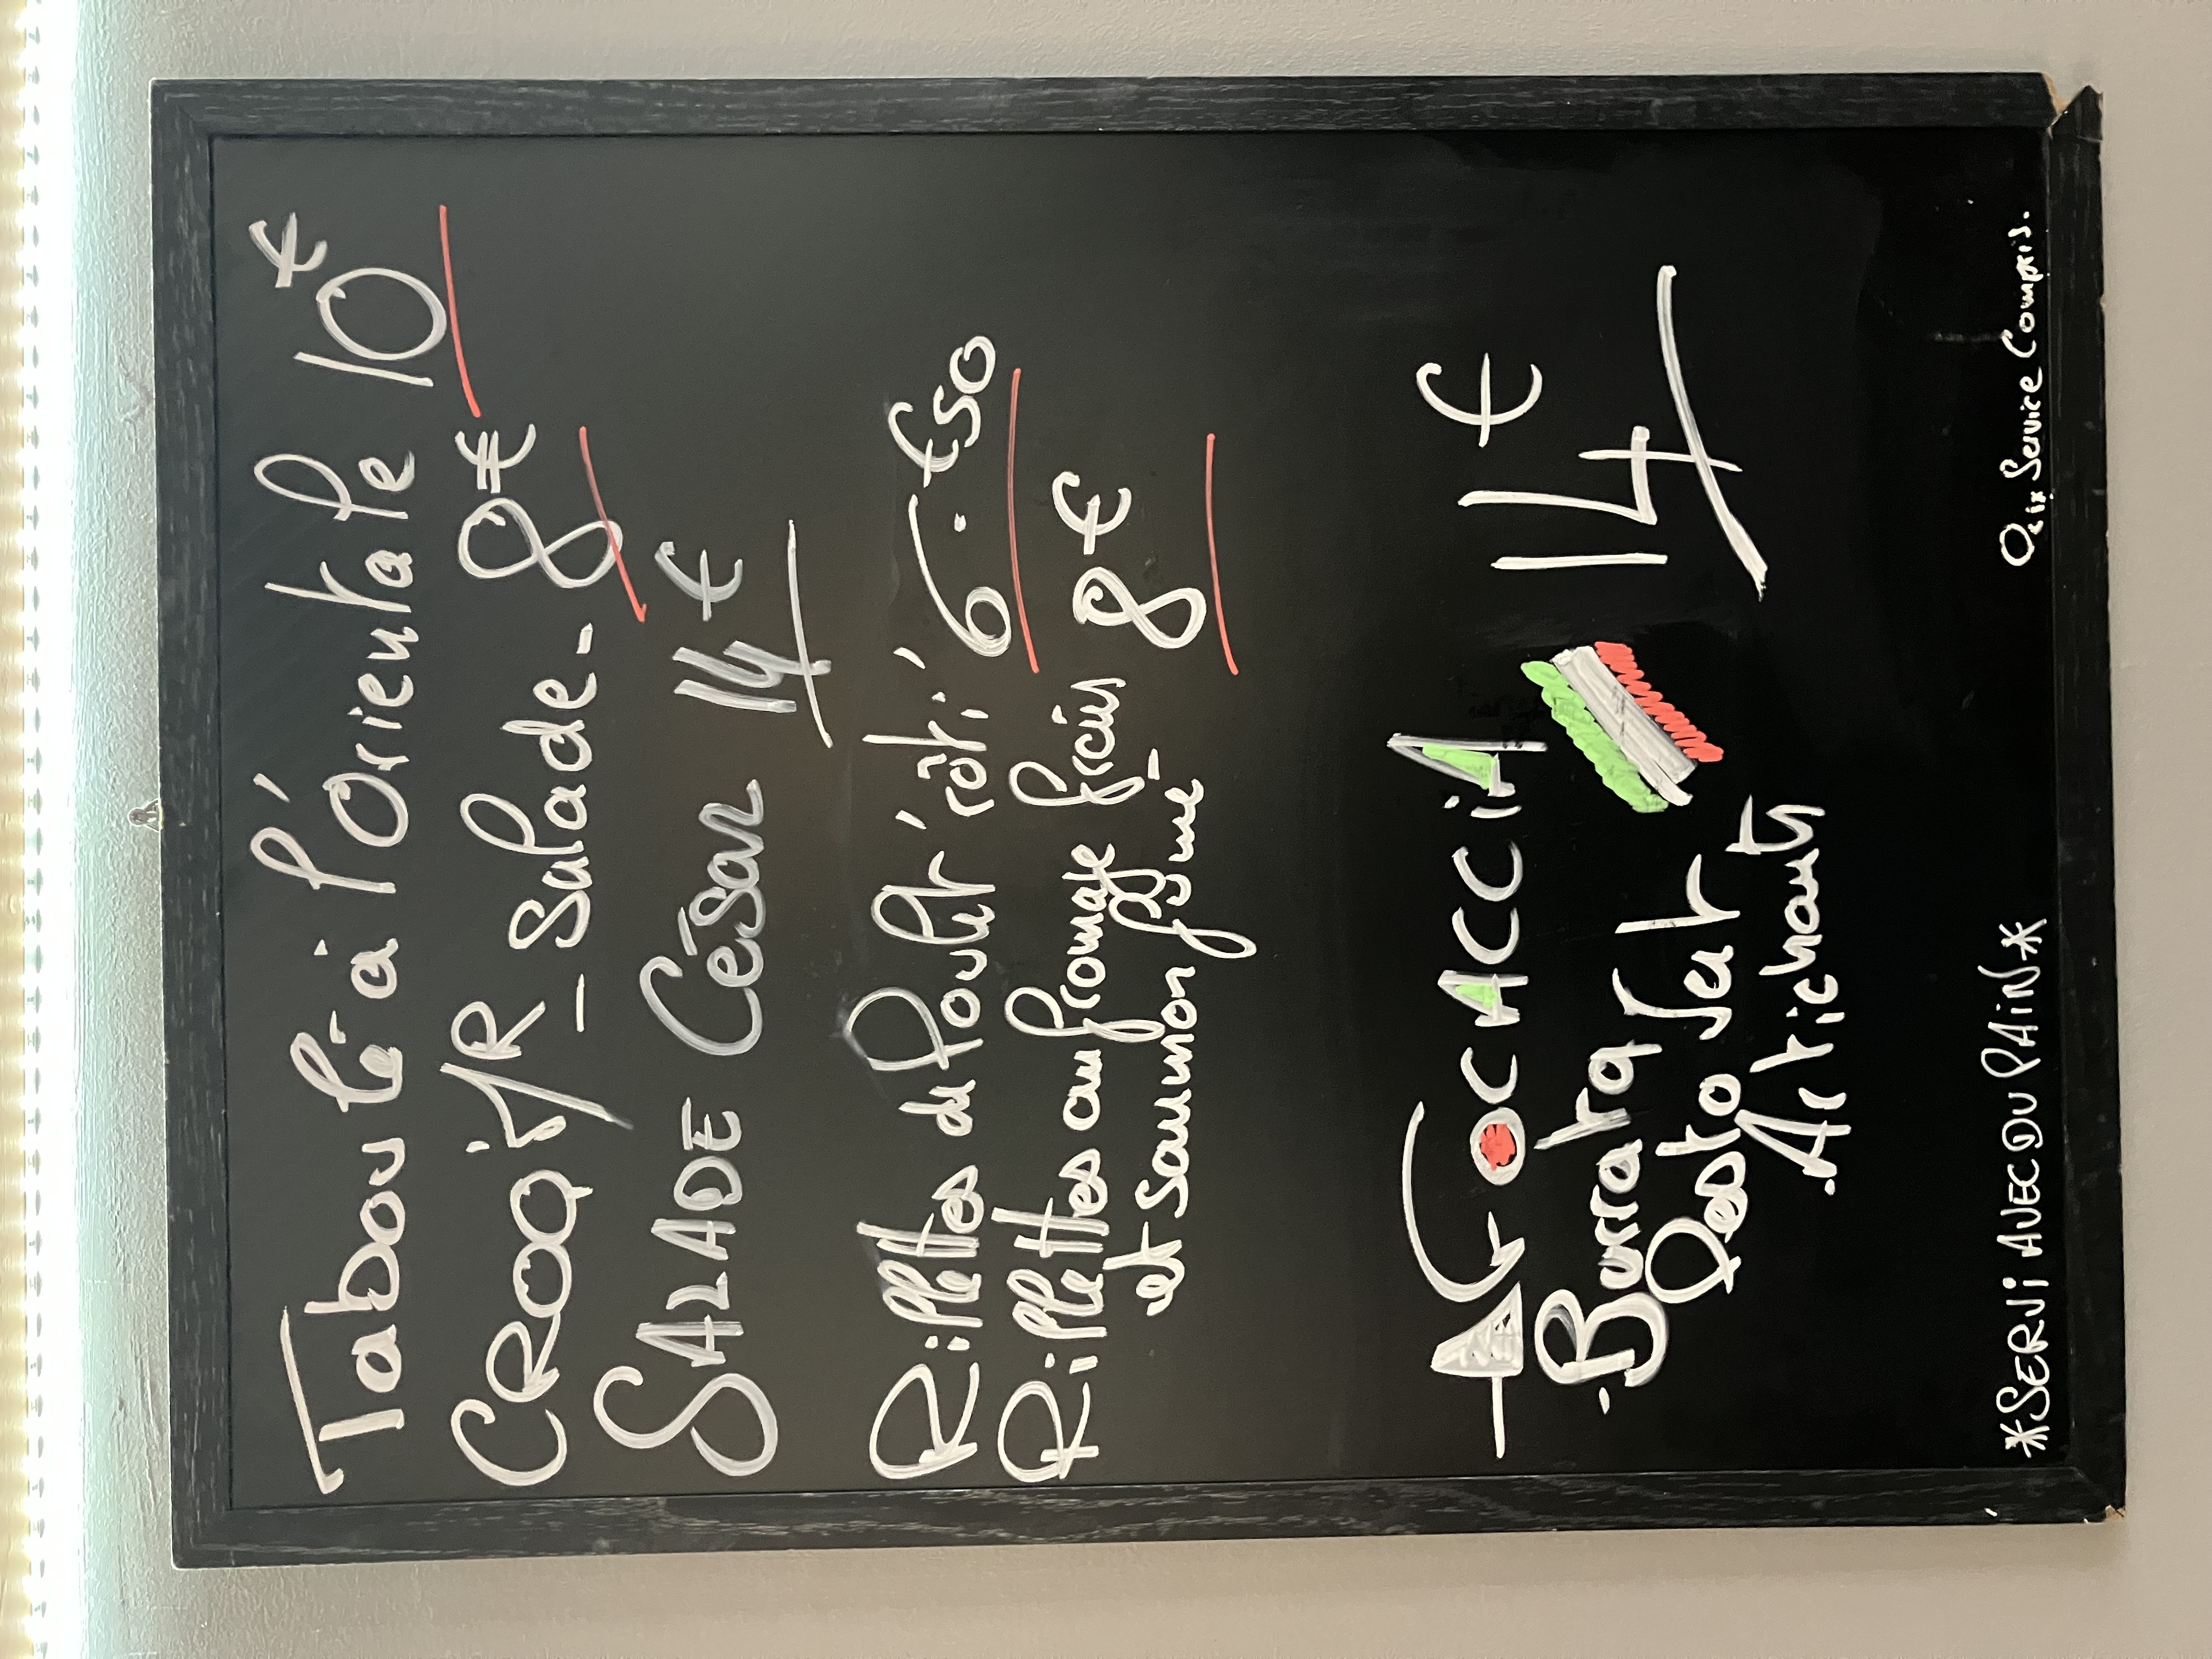 Taboulé à l'Orientale 10€
CROQ'M/R - Salade - 8€
SALADE César 14€
Rillettes de Poulet rôti 6.€50
Rillettes au fromage frais 8€
et saumon fumé -
FOCACCiA 14€
- Burrata
Pesto Vert
. Artichauts
*SERVi AVEC DU PAiN* Prix Service Compris.